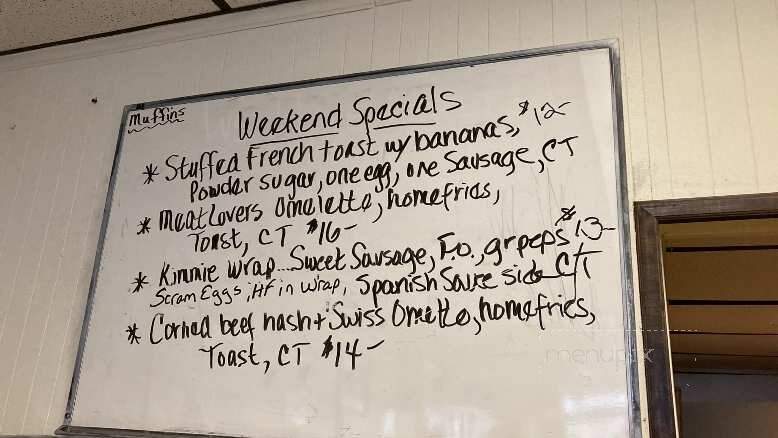 Muffins
Weekend Specials
* Stuffed french toast w/ bananas, $12-
Powder sugar, one egg, one Sausage, CT
* Meat Lovers Omelette, homefries,
Toast, CT $16-
* Kinnie Wrap... Sweet Sausage, F.o., gr peps $13-
Scram Eggs, HF in Wrap, Spanish Sauce side C/T
* Corned beef hash + Swiss Omelte, homefries,
Toast, CT $14-
menupix